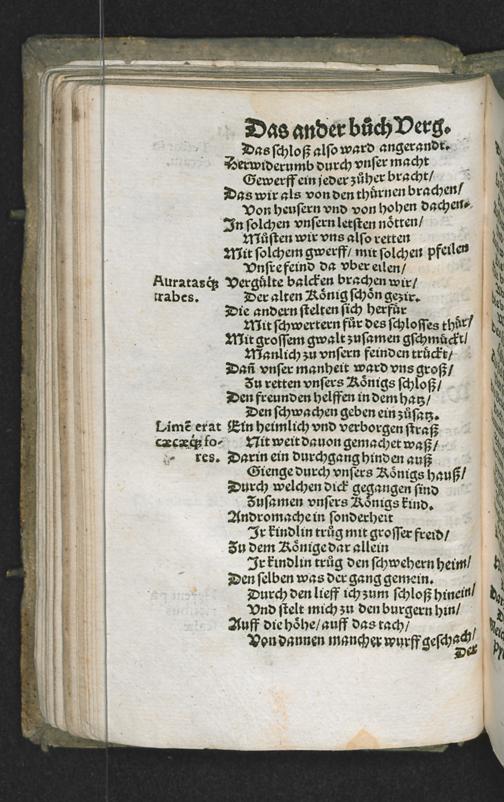 Das ander bůch Verg.
Das schloß also ward angerandt.
Herwiderumb durch vnser macht
Gewerff ein jeder züher bracht/
Das wir als von den thürnen brachen/
Von heusern vnd von hohen dachen.
In solchen vnsern letsten nötten/
Müsten wir vns also retten
Mit solchem gwerff/ mit solchen pfeilen
Vnsre feind da vber eilen/
Auratasq́₃ trabes.
Vergülte balcken brachen wir/
Der alten König schön gezir.
Die andern stelten sich herfür
Mit schwertern für des schlosses thür/
Mit grossem gwalt zusamen gschmückt/
Manlich zu vnsern feinden trückt/
Dañ vnser manheit ward vns groß/
Zu retten vnsers Königs schloß/
Den freunden helffen in dem hatz/
Den schwachen geben ein zůsatz.
Limẽ erat
cæcæq́₃ fo-
res.
Ein heimlich vnd verborgen straß
Nit weit dauon gemachet waß/
Darin ein durchgang hinden auß
Gienge durch vnsers Königs hauß/
Durch welchen dick gegangen sind
Zusamen vnsers Königs kind.
Andromache in sonderheit
Ir kindlin trůg mit grosser freid/
Zu dem Könige dar allein
Ir kindlin trůg den schwehern heim/
Den selben was der gang gemein.
Durch den lieff ich zum schloß hinein/
Vnd stelt mich zu den burgern hin/
Auff die höhe/ auff das tach/
Von dannen mancher wurff geschach/
Der